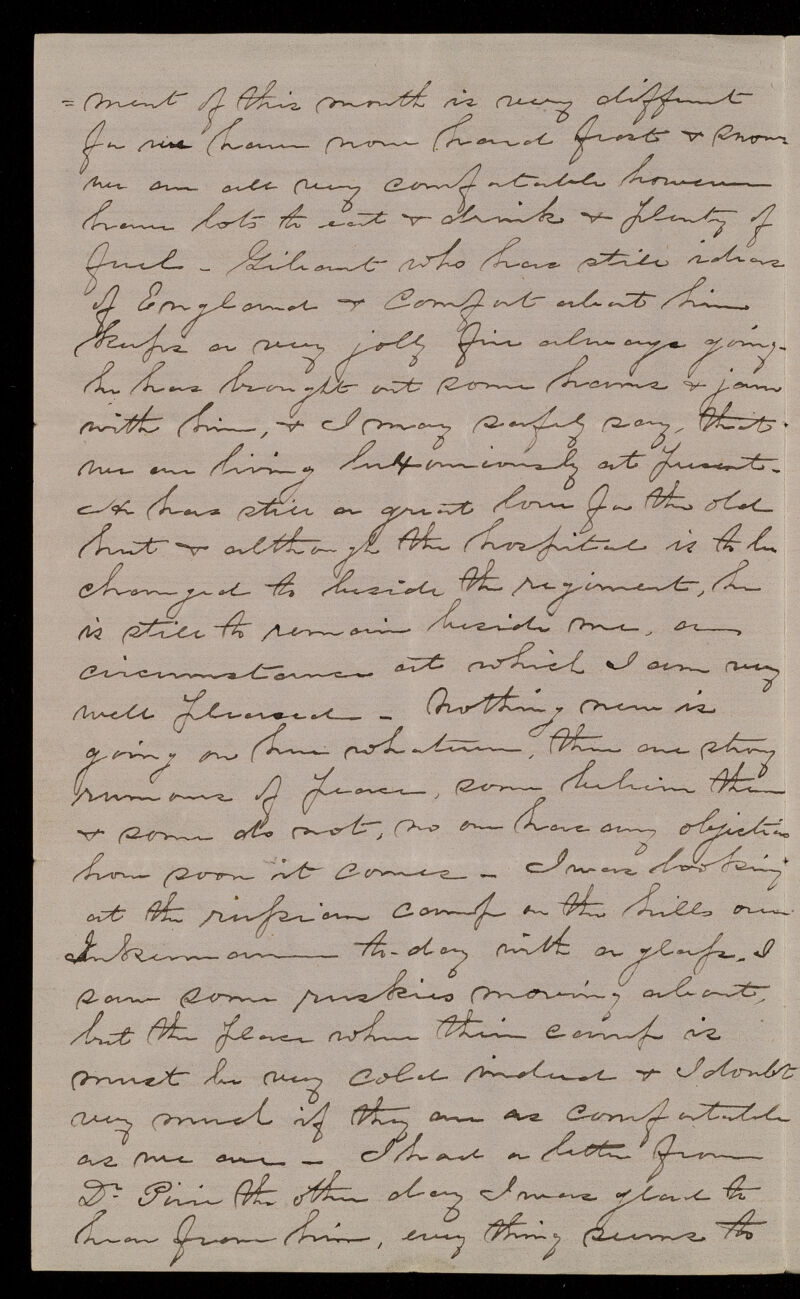 =ment of this month is very different
for we have now hard frost & snow
we are all very comfortable however
have lots to eat & drink & plenty of
fuel - Gilhaut who has still ideas
of England & comfort about him
keeps a very jolly fire always going -
he has brought out some hams & jam
with him, & I may safely say, that
we are living luxuriously at present -
He has still a great love for the old
hut & although the hospital is to be
changed to beside the regiment, he
is still to remain beside me, a
circumstance at which I am very
well pleased - Nothing new is
going on here whatever, there are strong
rumours of peace, some believe them
& some do not, no one has any objection
how soon it comes - I was looking
at the russian camp on the hills over
Inkermann to-day with a glass. I
saw some ruskies moving about,
but the place where their camp is
must be very cold indeed & I doubt
very much if they are as comfortable
as we are - I had a letter from
Dr Pirie the other day I was glad to
hear from him, every thing seems to